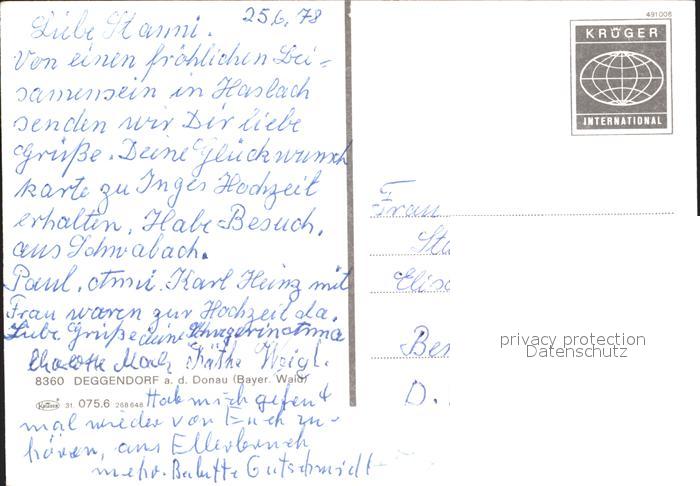 25.6.78
Liebe Stanni.
Von einen fröhlichen Bei=
samensein in Haslach
senden wir Dir liebe
Grüße. Deine Glückwunsch
karte zu Inges Hochzeit
erhalten. Habe Besuch.
aus Schwabach.
Paul, Anni. Karl Heinz mit
Frau waren zur Hochzeit da.
Liebe Grüße deine
Käthe Weigl.
8360 DEGGENDORF a. d. Donau (Bayer. Wald)
Krüger 31. 075.6 268648
Hab mich gefreut
mal wieder von Euch zu-
hören, aus
491008
KRÜGER
INTERNATIONAL
Frau
Sta
Elisa
Ber
D.
privacy protection
Datenschutz